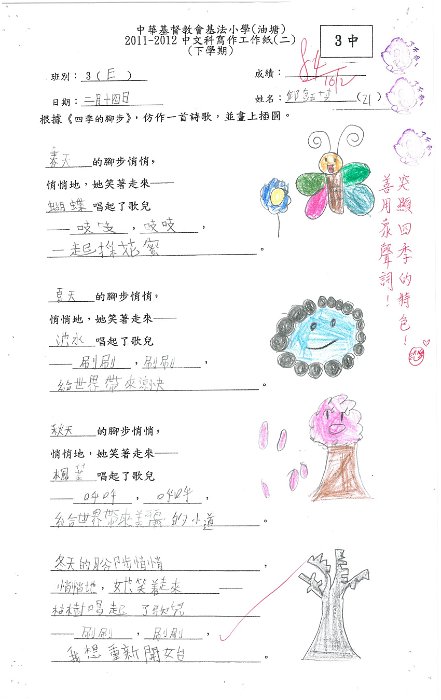 中華基督教會基法小學(油塘)
2011-2012 中文科寫作工作紙(二)
(下學期)
3中
班別：3(E)
成績：84
16/2
日期：二月十四日
姓名：(21)
根據《四季的腳步》，仿作一首詩歌，並畫上插圖。
春天 的腳步悄悄，
悄悄地，她笑著走來──
蝴蝶 唱起了歌兒
──吱吱，吱吱，
一起採花蜜。
夏天 的腳步悄悄，
悄悄地，她笑著走來──
池水 唱起了歌兒
──刷刷，刷刷，
給世界帶來涼快。
秋天 的腳步悄悄，
悄悄地，她笑著走來──
楓葉 唱起了歌兒
──沙沙，沙沙，
給世界帶來美麗的小道。
冬天的腳步悄悄，
悄悄地，她笑著走來──
枯樹唱起了歌兒
──刷刷，刷刷，
我想重新開始。
突顯四季的特色！
善用象聲詞！